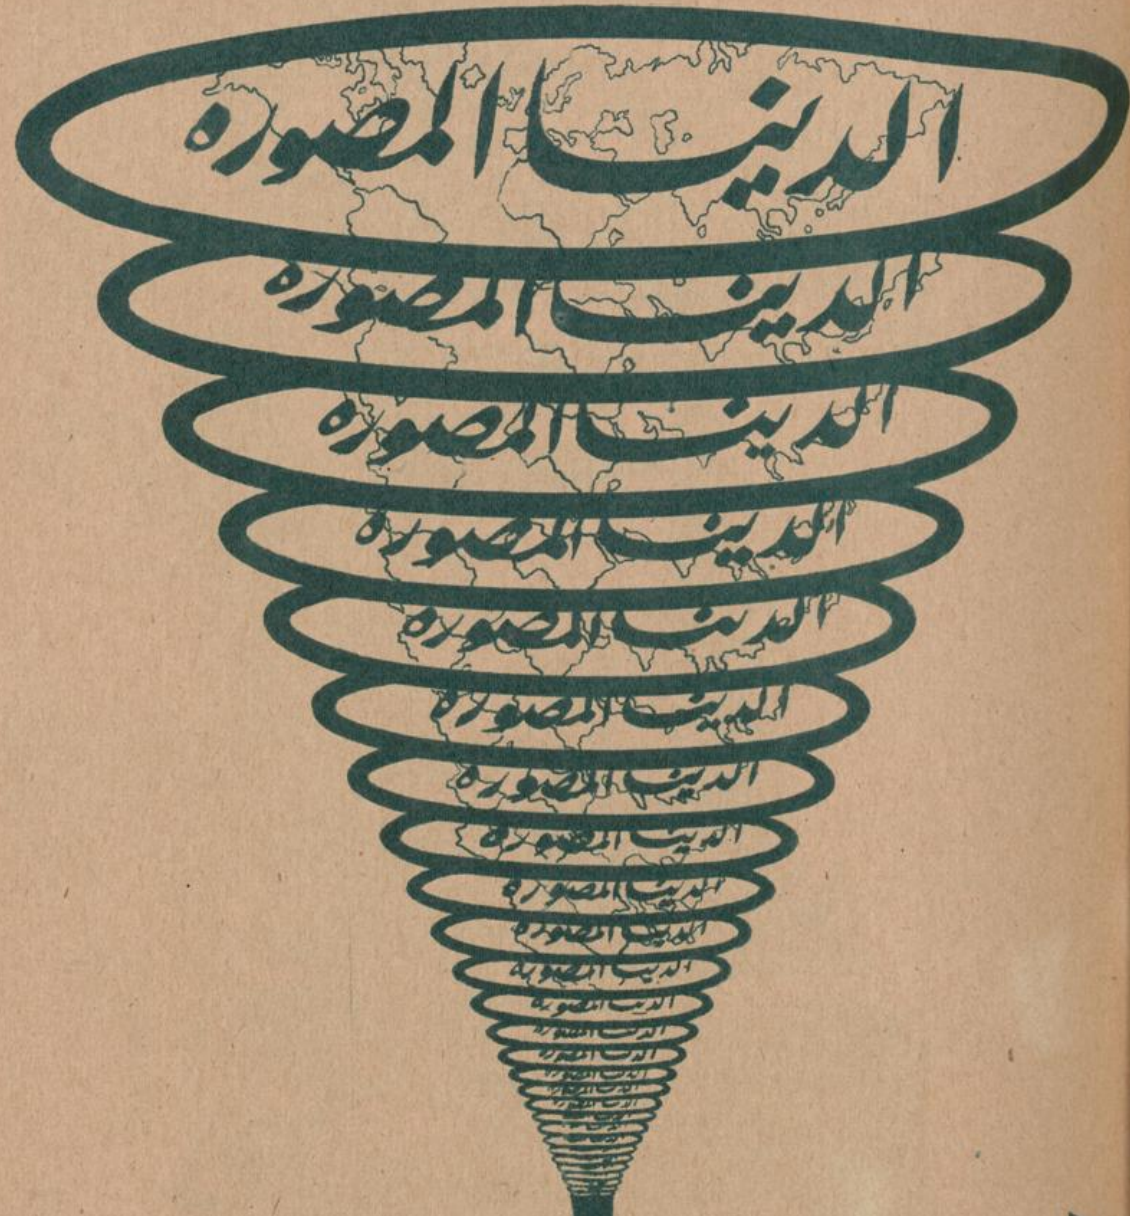 الدنيا المصوره
الدنيا المصوره
الدنيا المصوره
الدنيا المصوره
الدنيا المصوره
الدنيا المصوره
الدنيا المصوره
الدنيا المصوره
الدنيا المصوره
الدنيا المصوره
الدنيا المصوره
الدنيا المصوره
الدنيا المصوره
الدنيا المصوره